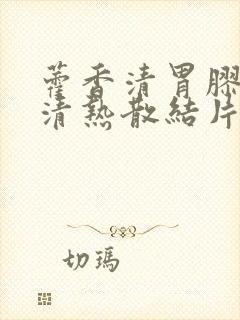 藿香清胃膠
清熱散結片
切瑪